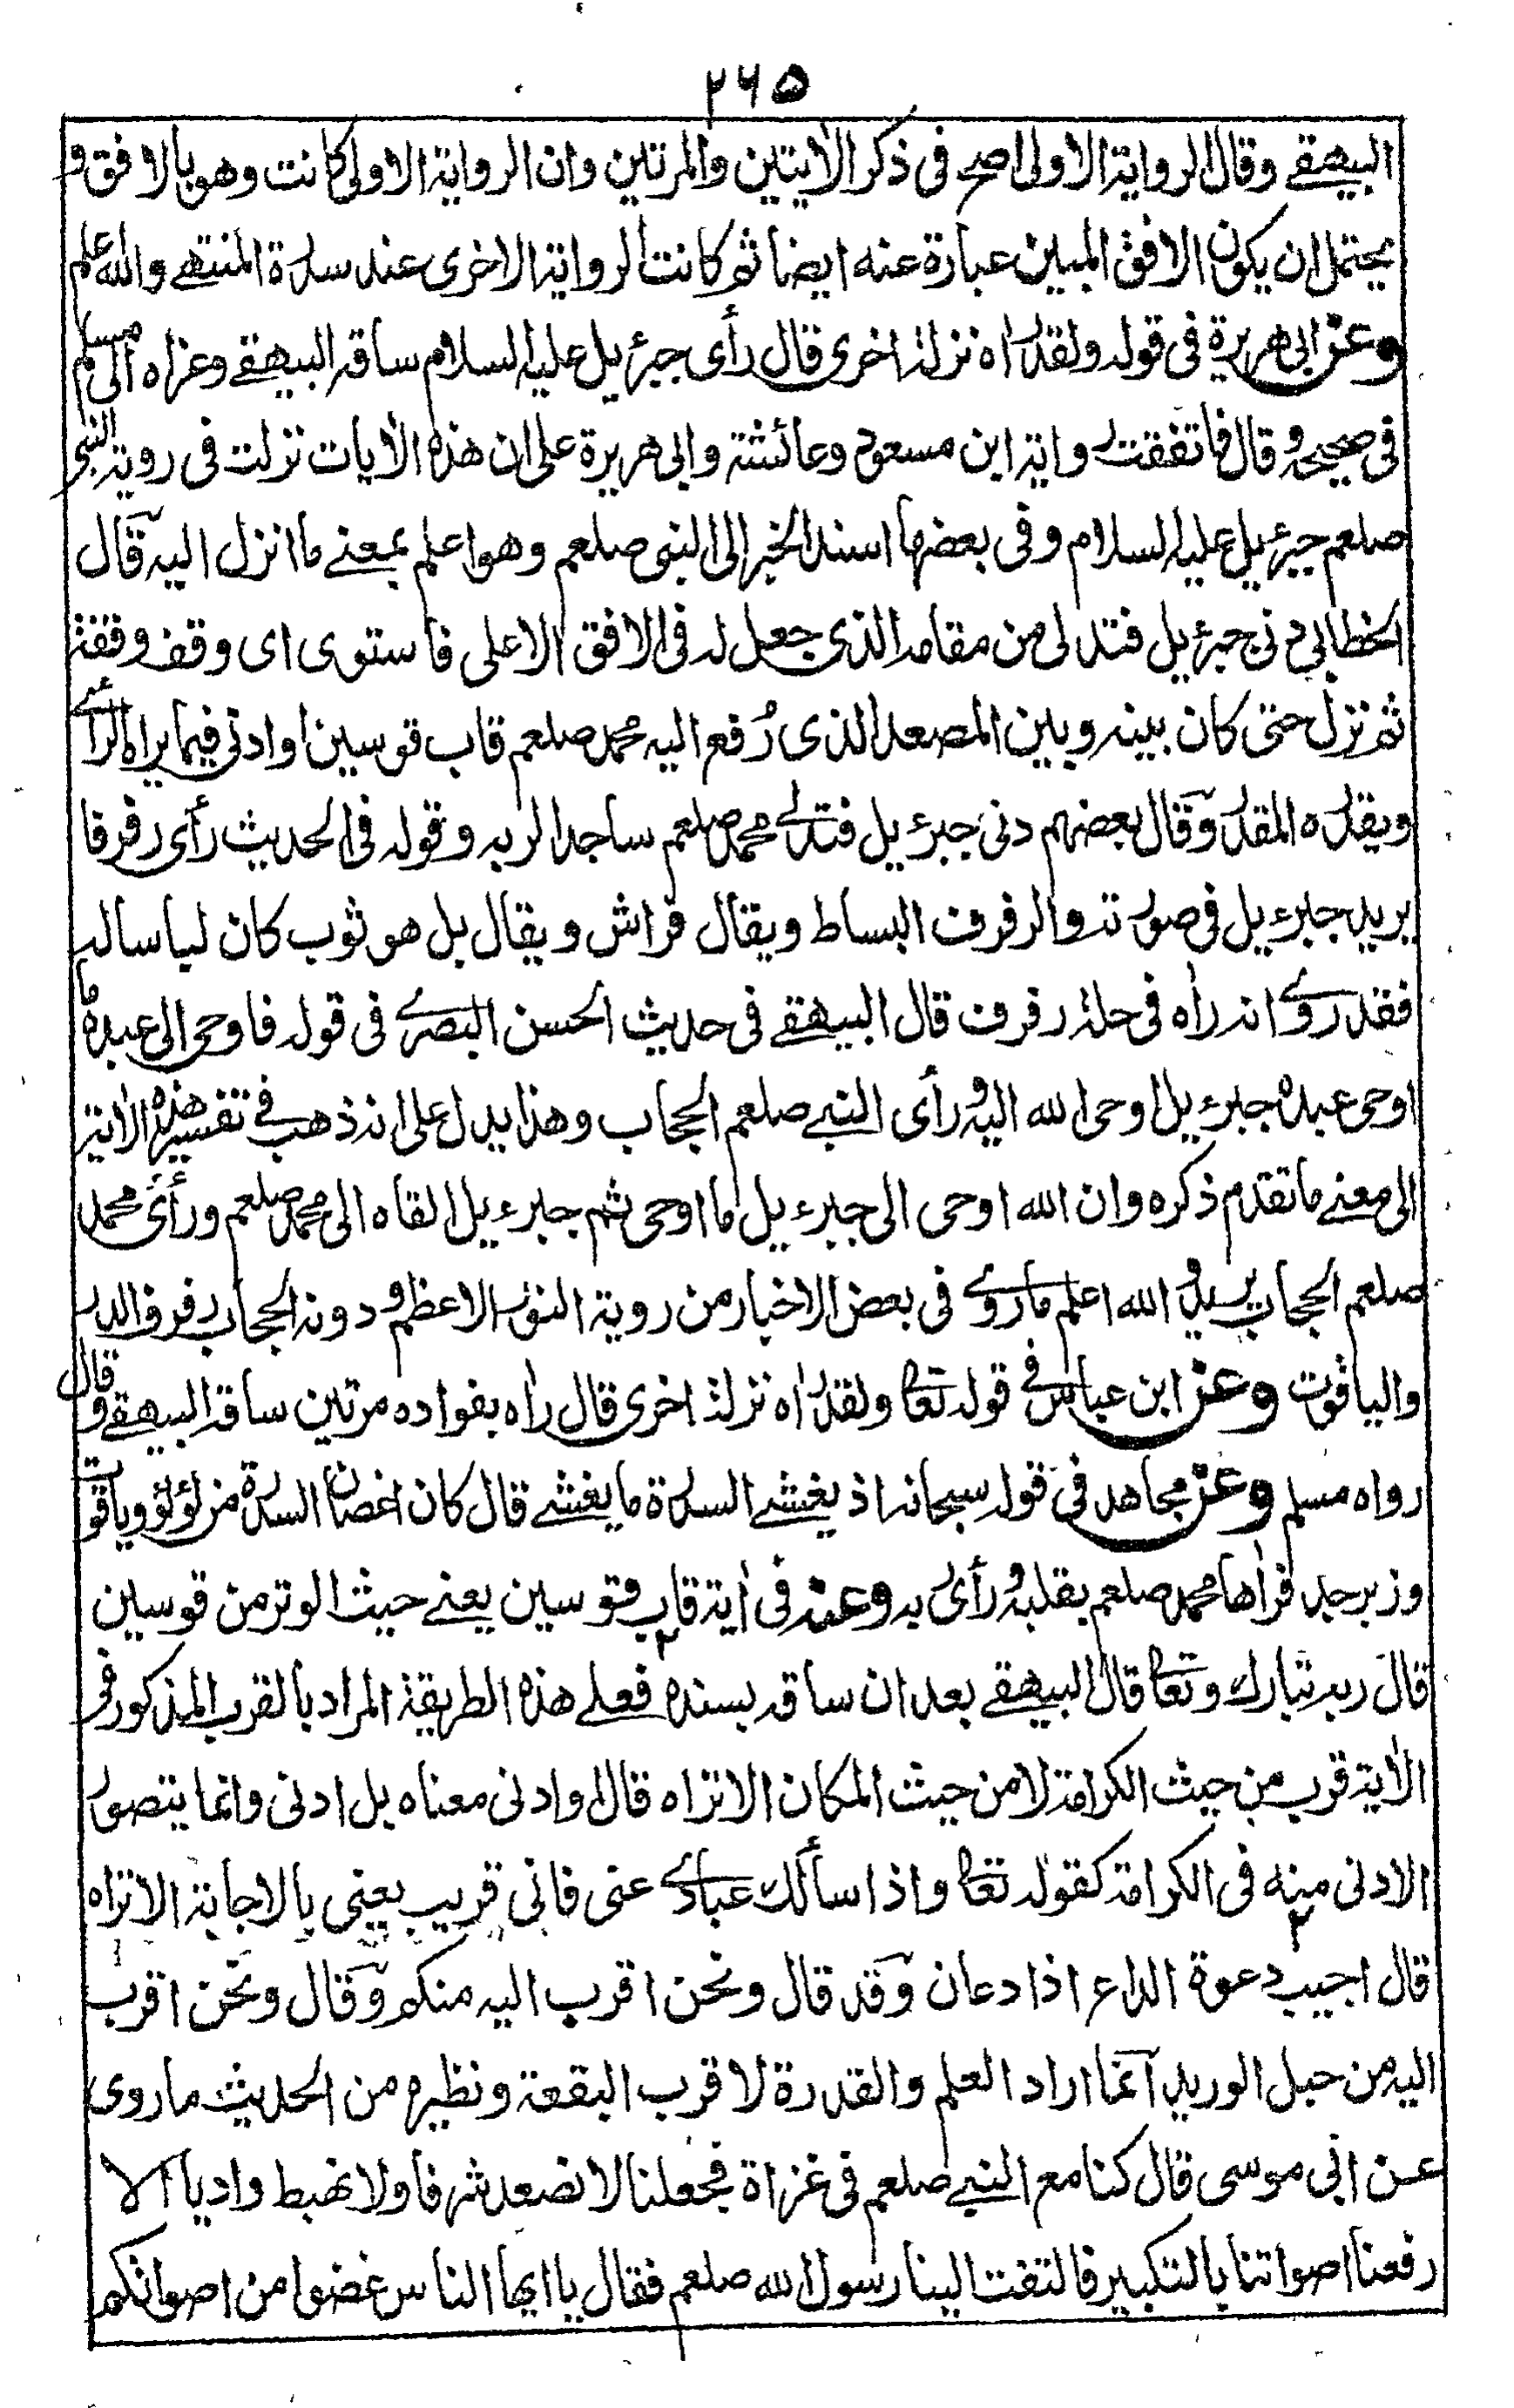 ۲۶۵
البيهقے وقال الرواية الاولى اصح فى ذكر الآيتين والمرتين وان الرواية الاولى كانت وهو بالافق و
يحتمل ان يكون الافق المبين عبارة عنه ايضا ثم كانت الرواية الاخرى عند سدرة المنتهے والله اعلم
وعن ابى هريرة فى قوله ولقد راه نزلة اخرى قال رأى جبرئيل عليه السلام ساقه البيهقے وعزاه الى مسلم
فى صحيحه وقال فاتفقت رواية ابن مسعود وعائشة وابى هريرة على ان هذه الآيات نزلت فى روية النبى
صلعم جبرئيل عليه السلام وفى بعضها اسند الخبر الى النبى صلعم وهو اعلم بمعنے ما انزل اليه قال
الخطابى دنى جبرئيل فتدلى من مقامه الذى جعل له فى الافق الاعلى فاستوى اى وقف وقفة
ثم نزل حتى كان بينه وبين المصعد الذى رُفع اليه محمد صلعم قاب قوسين او ادنى فيما يراه الرأے
ويقدره المقدر وقال بعضهم دنى جبرءيل فتدلے محمد صلعم ساجدا لربه وقوله فى الحديث رأى رفرفا
يريد جبرءيل فى صورته والرفرف البساط ويقال فراش ويقال بل هو ثوب كان لباسا له
فقد روے انه راٰه فى حلة رفرف قال البيهقے فى حديث الحسن البصرے فى قوله فاوحى الى عبده ما
اوحى عبده جبرءيل اوحى الله اليه ورأى النبے صلعم الحجاب وهذا يدل على انه ذهب فے تفسير هذه الآية
الى معنے ما تقدم ذكره وان الله اوحى الى جبرءيل ما اوحى ثم جبرءيل القاه الى محمد صلعم ورأى محمد
صلعم الحجاب يريد والله اعلم ما روے فى بعض الاخبار من روية النور الاعظم ودونه الحجاب رفرف الدر
والياقوت وعن ابن عباس فى قوله تعا ولقد راه نزلة اخرى قال راٰه بفواده مرتين ساقه البيهقے وقال
رواه مسلم وعن مجاهد فى قوله سبحانه اذ يغشے السدرة ما يغشے قال كان اغصان السدرة من لؤلؤ وياقوت
وزبرجد فراٰها محمد صلعم بقلبه ورأى ربه وعنه فى اٰية قاب قوسين يعنے حيث الوتر من قوسين
قال ربه تبارك وتعا قال البيهقے بعد ان ساقه بسنده فعلے هذه الطريقة المراد بالقرب المذكور فى
الاٰية قرب من حيث الكرامة لا من حيث المكان الا تراه قال او ادنى معناه بل ادنى وانما يتصور
الادنى منه فى الكرامة كقوله تعا واذا سألك عبادے عنى فانى قريب يعنى بالاجابة الا تراه
قال اجيب دعوة الداع اذا دعان وقد قال ونحن اقرب اليه منكم وقال ونحن اقرب
اليه من حبل الوريد انما اراد العلم والقدرة لا قرب البقعة ونظيره من الحديث ما روى
عن ابى موسى قال كنا مع النبے صلعم فى غزاة فجعلنا لا نصعد شرفا ولا نهبط واديا الا
رفعنا اصواتنا بالتكبير فالتفت الينا رسول الله صلعم فقال يا ايها الناس غضوا من اصواتكم